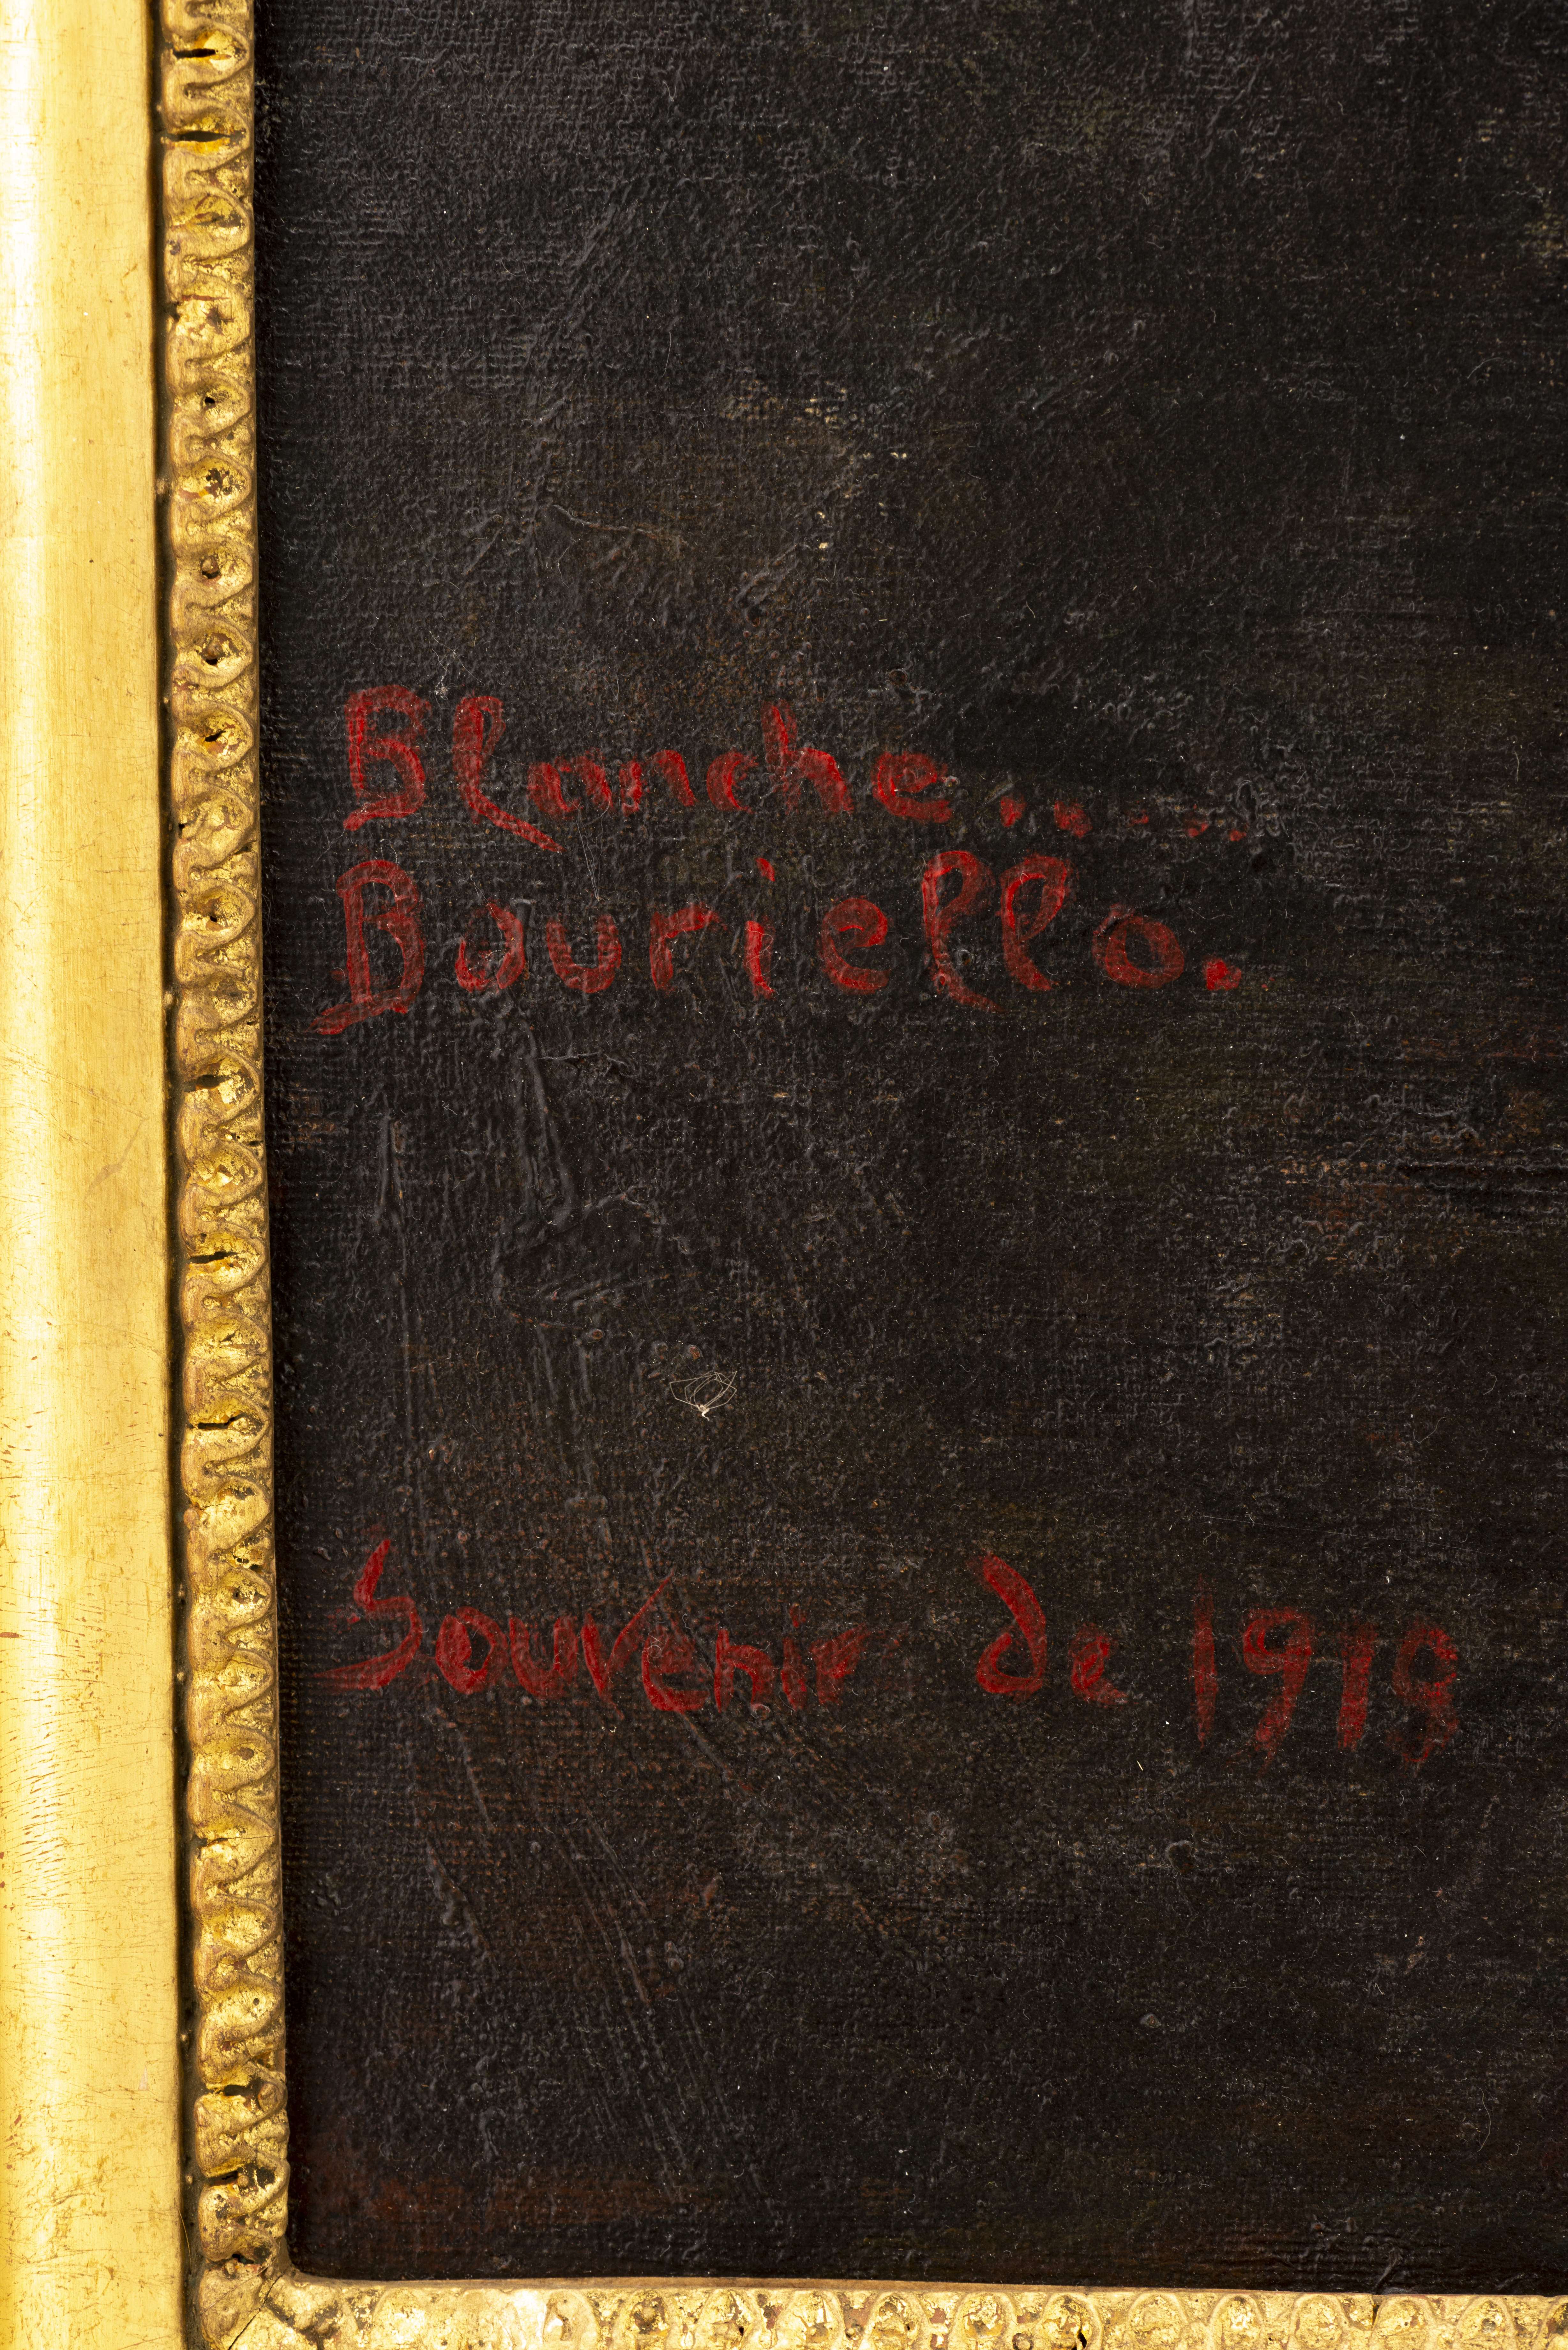 Blanche.....
Bouriello.
Souvenir de 1918